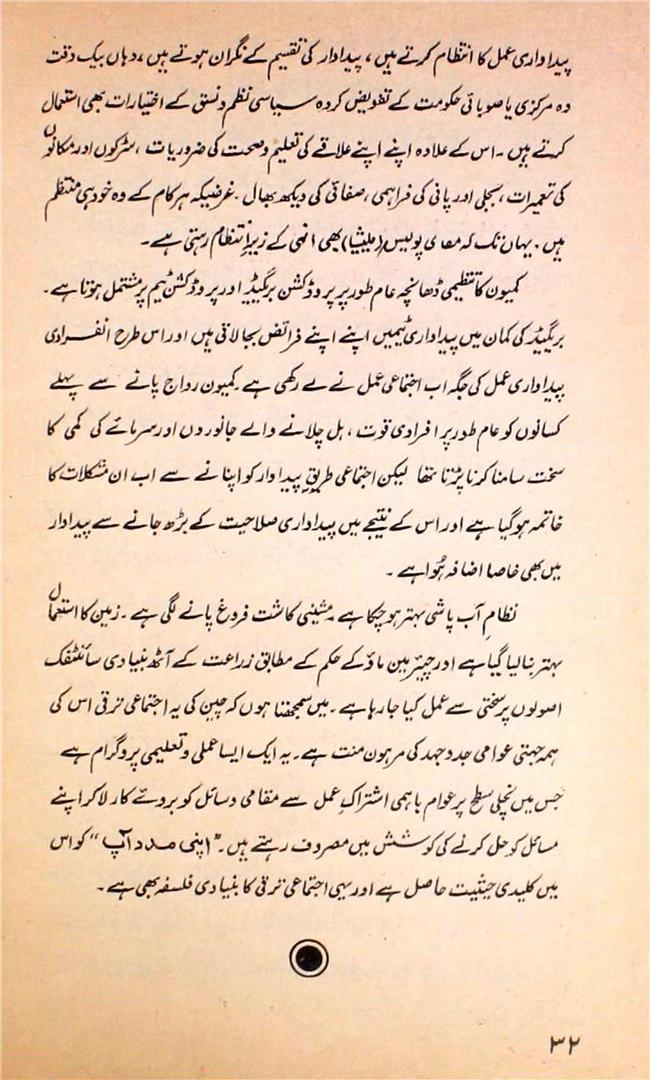 پیداواری عمل کا انتظام کرتے ہیں، پیداوار کی تقسیم کے نگران ہوتے ہیں، وہاں بیک وقت
وہ مرکزی یا صوبائی حکومت کے تفویض کردہ سیاسی نظم و نسق کے اختیارات بھی استعمال
کرتے ہیں۔ اس کے علاوہ اپنے اپنے علاقے کی تعلیم و صحت کی ضروریات، سڑکوں اور مکانوں
کی تعمیرات، بجلی اور پانی کی فراہمی، صفائی کی دیکھ بھال۔ غرضیکہ ہر کام کے وہ خود ہی منتظم
ہیں۔ یہاں تک کہ مقامی پولیس (ملیشیا) بھی انہی کے زیرِ انتظام رہتی ہے۔
کمیون کا تنظیمی ڈھانچہ عام طور پر پروڈکشن بریگیڈ اور پروڈکشن ٹیم پر مشتمل ہوتا ہے۔
بریگیڈ کی کمان میں پیداواری ٹیمیں اپنے اپنے فرائض بجا لاتی ہیں اور اس طرح انفرادی
پیداواری عمل کی جگہ اب اجتماعی عمل نے لے رکھی ہے۔ کمیون رواج پانے سے پہلے
کسانوں کو عام طور پر افرادی قوت، ہل چلانے والے جانوروں اور سرمائے کی کمی کا
سخت سامنا کرنا پڑتا تھا لیکن اجتماعی طریقِ پیداوار کو اپنانے سے اب ان مشکلات کا
خاتمہ ہو گیا ہے اور اس کے نتیجے میں پیداواری صلاحیت کے بڑھ جانے سے پیداوار
میں بھی خاصا اضافہ ہُوا ہے۔
نظامِ آب پاشی بہتر ہو چکا ہے۔ مشینی کاشت فروغ پانے لگی ہے۔ زمین کا استعمال
بہتر بنا لیا گیا ہے اور چیئرمین ماؤ کے حکم کے مطابق زراعت کے آٹھ بنیادی سائنٹفک
اصولوں پر سختی سے عمل کیا جا رہا ہے۔ میں سمجھتا ہوں کہ چین کی یہ اجتماعی ترقی اس کی
ہمہ جہتی عوامی جدوجہد کی مرہونِ منت ہے۔ یہ ایک ایسا عملی و تعلیمی پروگرام ہے
جس میں نچلی سطح پر عوام باہمی اشتراکِ عمل سے مقامی وسائل کو بروئے کار لا کر اپنے
مسائل کو حل کرنے کی کوشش میں مصروف رہتے ہیں۔ "اپنی مدد آپ" کو اس
میں کلیدی حیثیت حاصل ہے اور یہی اجتماعی ترقی کا بنیادی فلسفہ بھی ہے۔
۳۲